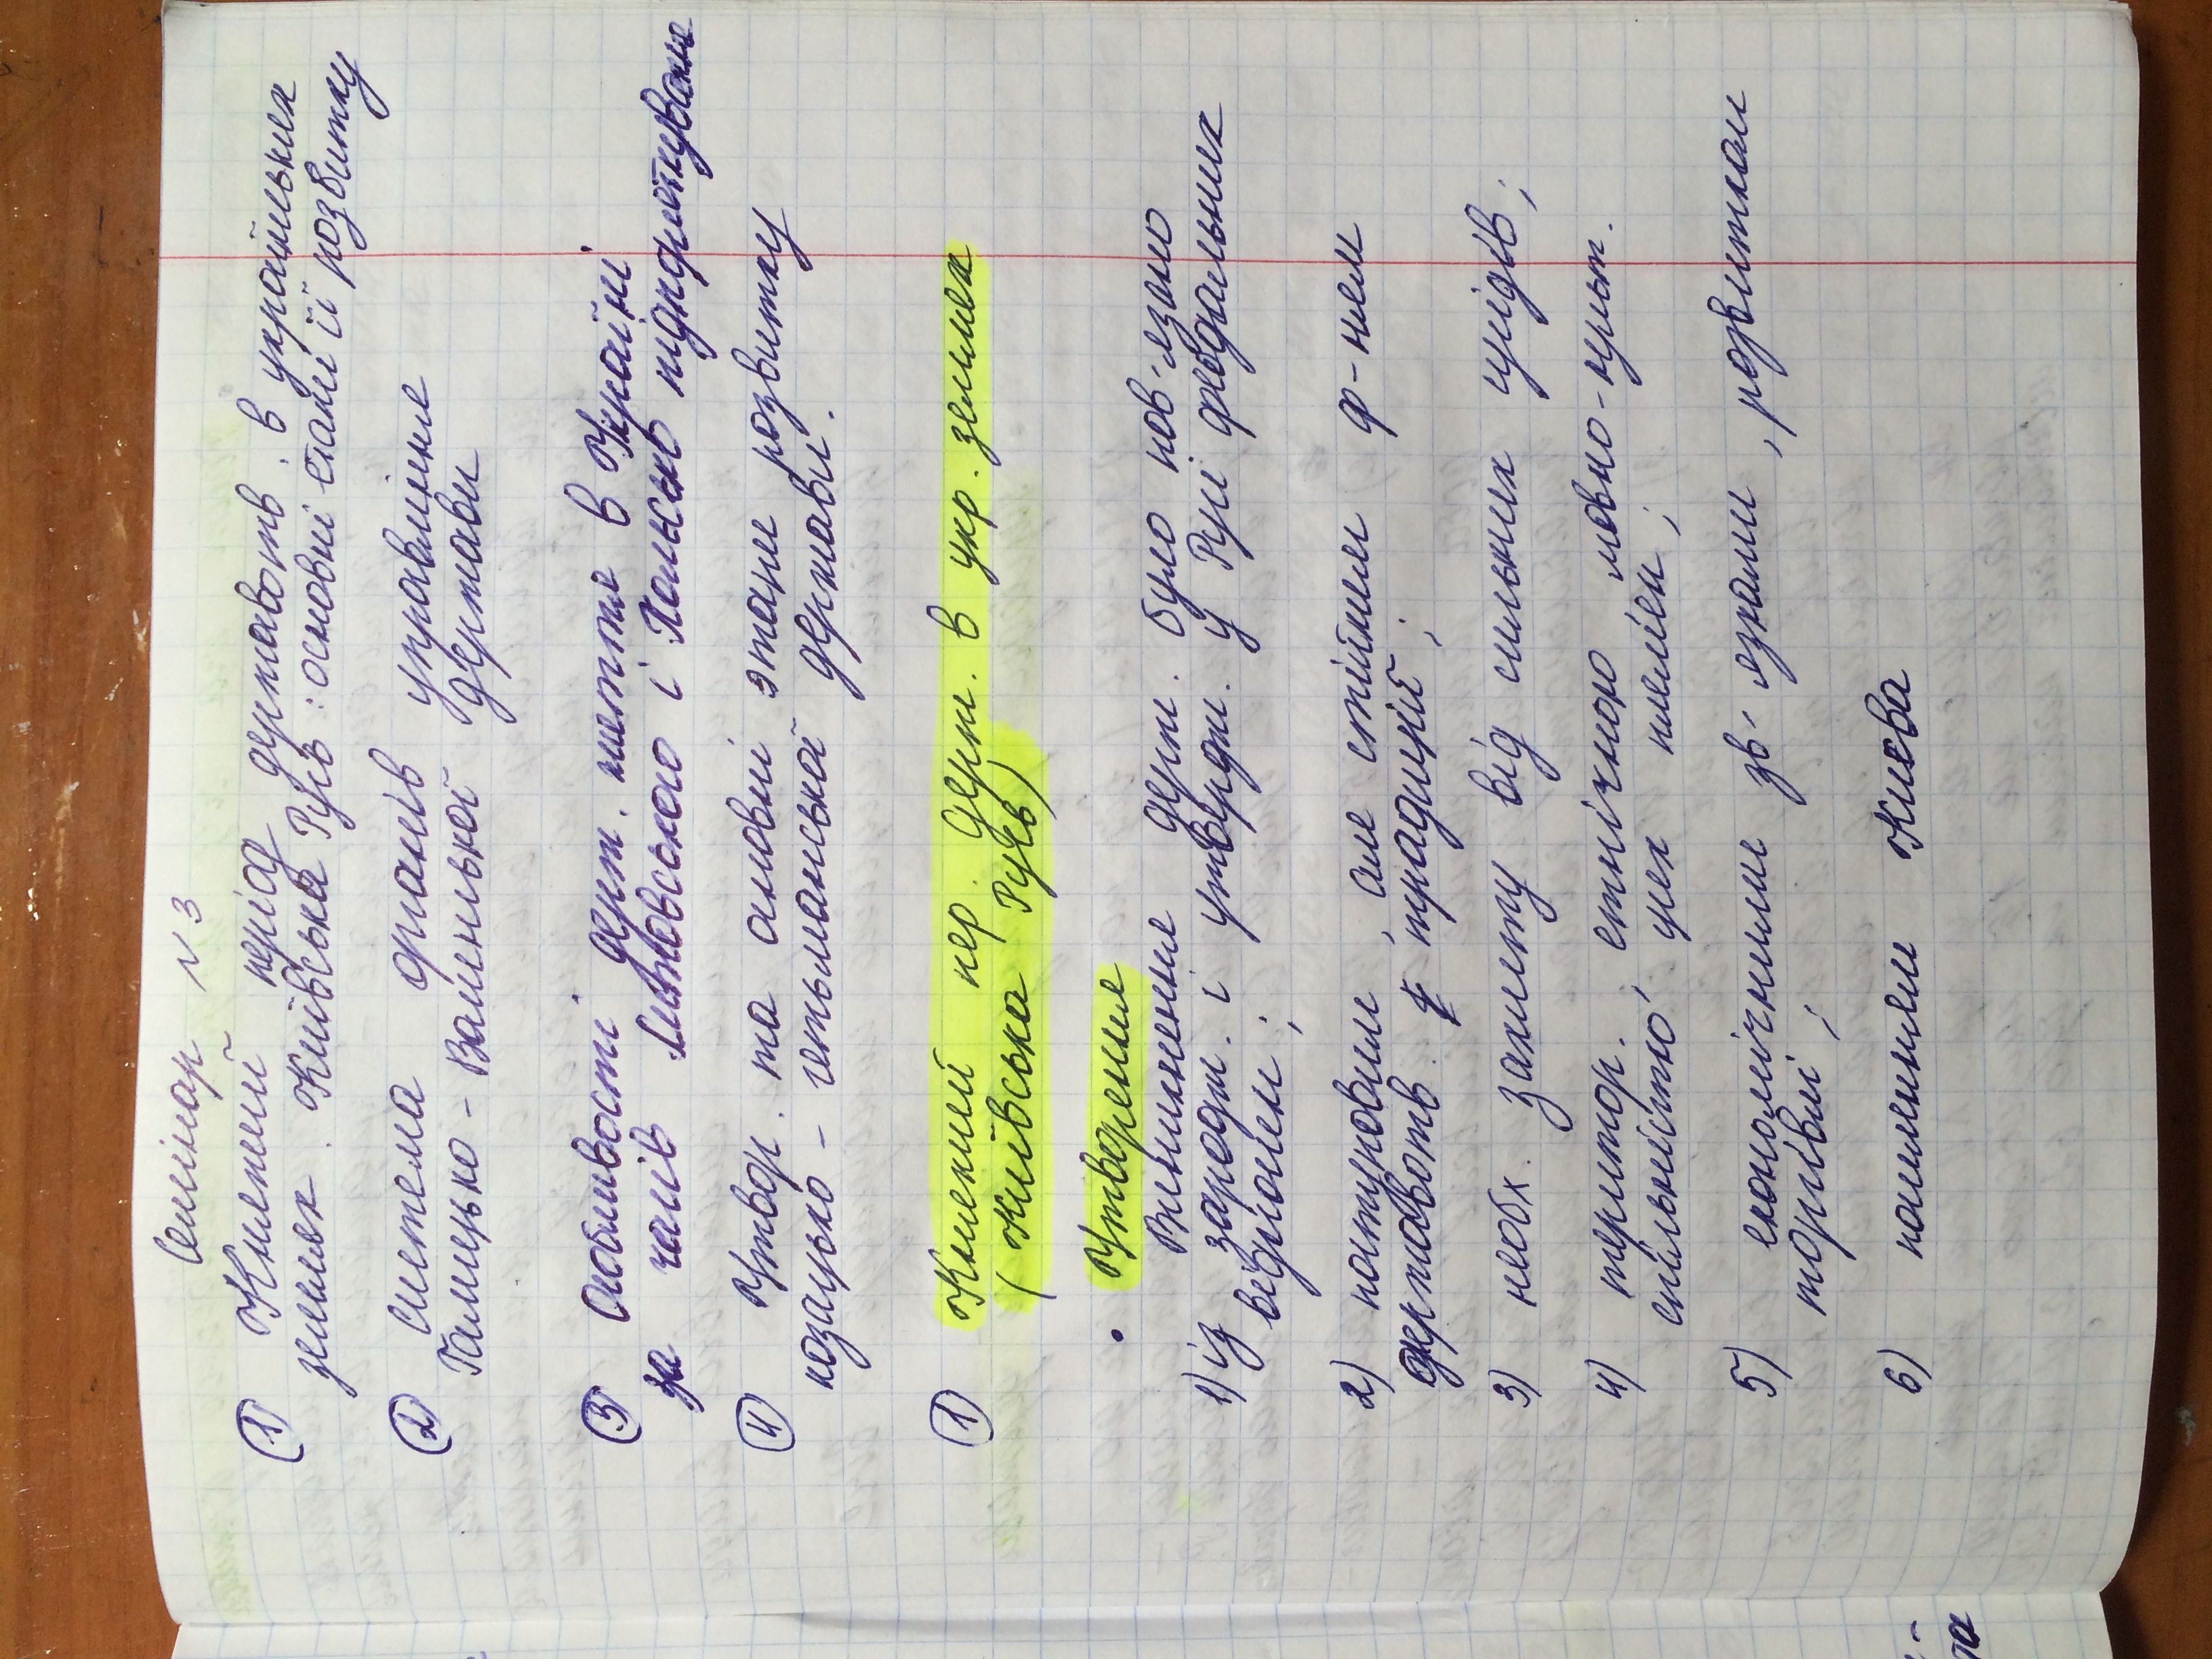 Семінар №3
① Княжий період державотв. в українських
землях. Київська Русь: основні етапи її розвитку
② система органів управління
Галицько-Волинської держави
③ Особливості держ. життя в Україні
за часів Литовського і Польсько підпорядкування
④ Утвор. та основні этапи розвитку
козацько-гетьманської держави.
① Княжий пер. держ. в укр. землях
(Київська Русь)
• Утворення
Виникнення держ. було пов'язано
1) із зародж. і утвердж. у Русі феодальних
відношен;
2) поступовим, але стійким ф-ням
державотв. традицій;
3) необх. захисту від сильних сусідів;
4) територ., етнічною, мовно-культ.
спільністю цих племен;
5) економічними зв'язками, розвитком
торгівлі;
6) посиленням Києва
та